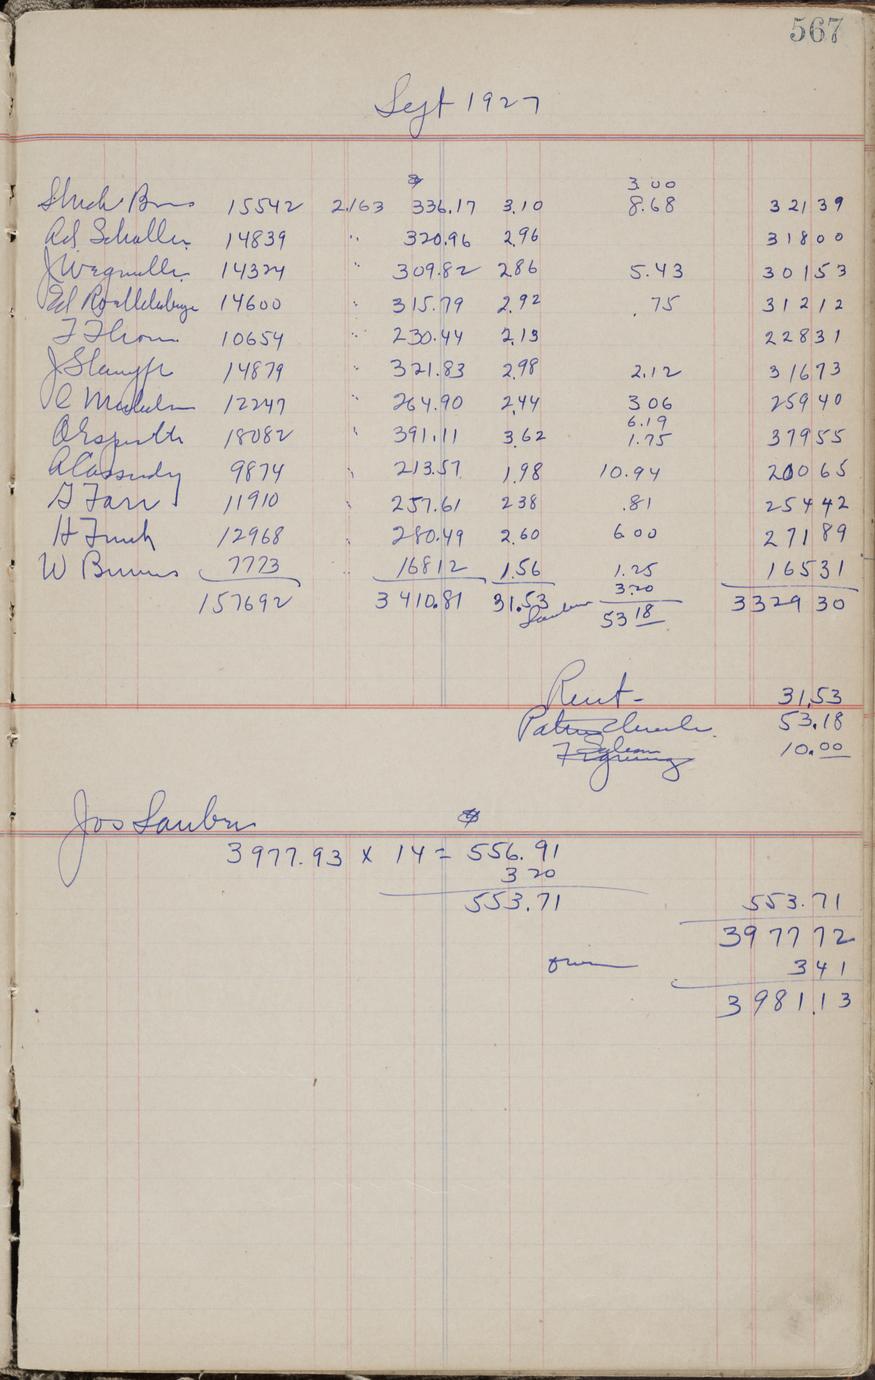 567
Sept 1927
3.00
15542 2163 336.17 3.10 8.68 321 39
Ad. Schaller 14839 " 320.96 2.96 318 00
J Wegmuller 14324 " 309.82 2.86 5.43 301 53
Ed 14600 " 315.79 2.92 .75 312 12
10654 " 230.44 2.13 228 31
14879 " 321.83 2.98 2.12 316 73
C 12247 " 264.90 2.44 3.06 259 40
6.19
18082 " 391.11 3.62 1.75 379 55
A Cassidy 9874 " 213.57 1.98 10.94 200 65
G Farr 11910 " 257.61 2.38 .81 254 42
H Funk 12968 " 280.49 2.60 6.00 271 89
W Burns 7773 " 168 12 1.56 1.25 165 31
3.20
157692 3410.81 31.53 53 18 3329 30
Rent - 31.53
53.18
10.00
Jos Lauber
3977.93 x 14 = 556.91
3 20
553.71 553.71
3977 72
3 41
3981.13